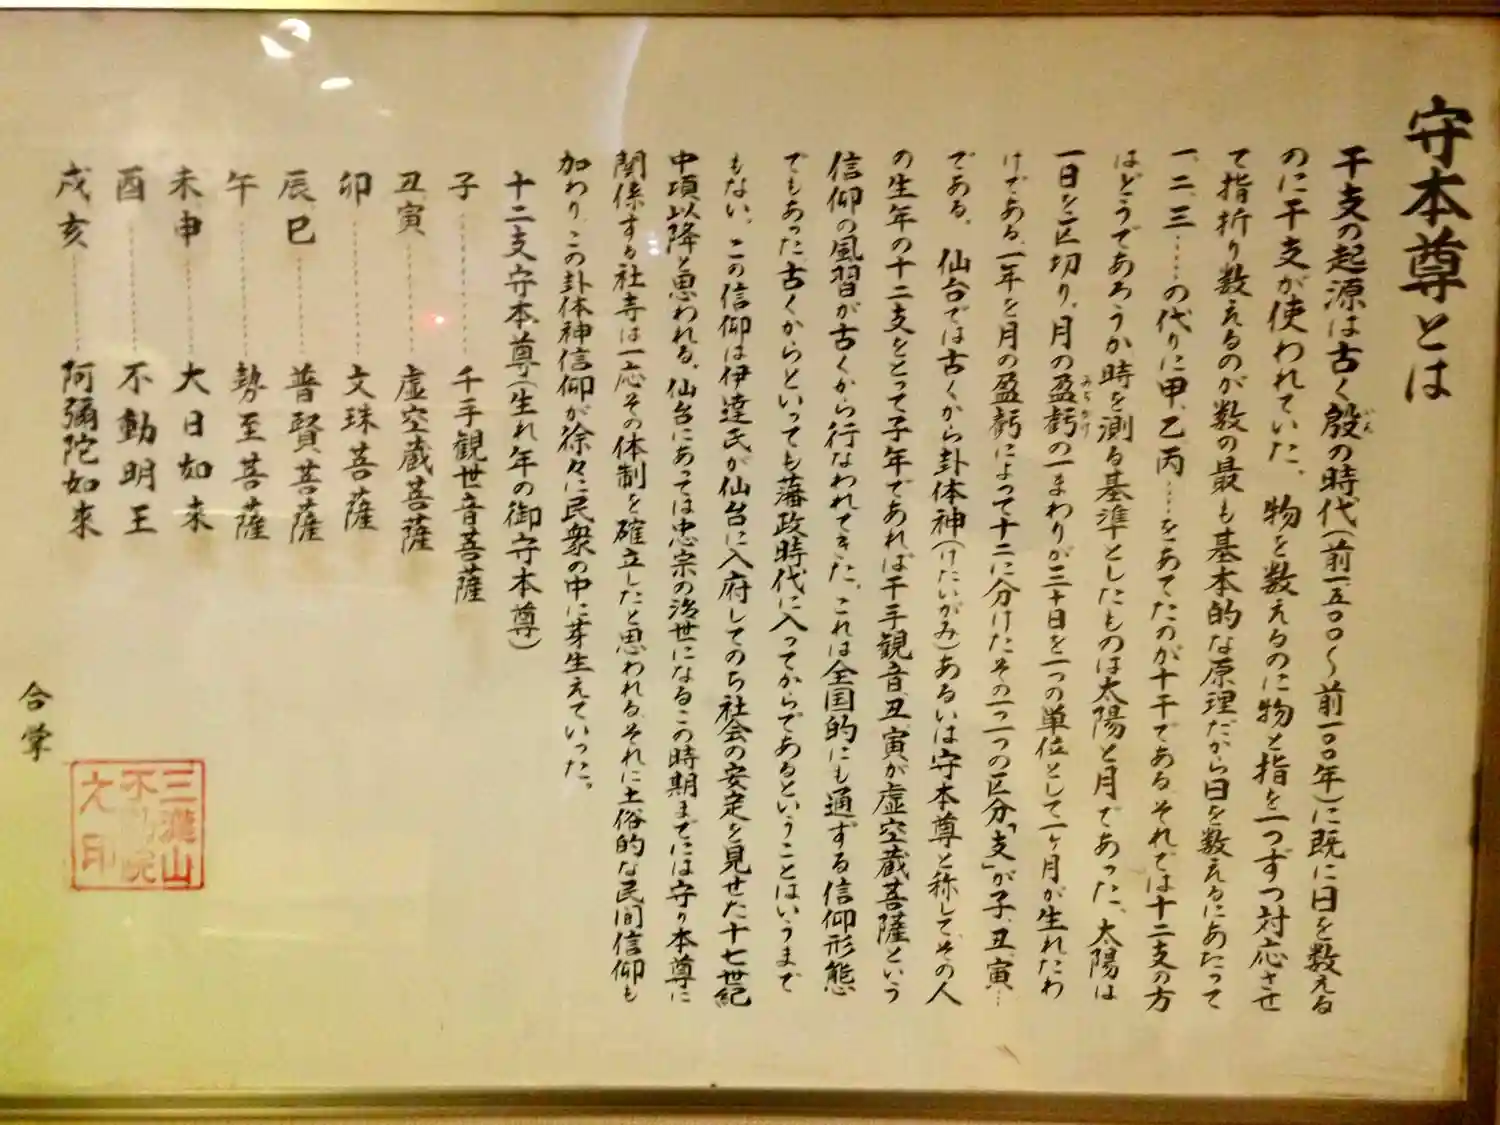 守本尊とは
干支の起源は古く殷の時代(前一五〇〇~前一一〇〇年)に既に日を数える
のに干支が使われていた、物を数えるのに物と指を一つずつ対応させ
て指折り数えるのが数の最も基本的な原理だから日を数えるにあたって
一、二、三……の代りに甲、乙、丙……をあてたのが十干である。それでは十二支の方
はどうであろうか時を測る基準としたものは太陽と月であった、太陽は
一日を区切り、月の盈虧の一まわりが三十日を一つの単位として一ヶ月が生れたわ
けである、一年を月の盈虧によって十二に分けたその一つ一つの区分「支」が子、丑、寅…
である、仙台では古くから卦体神(けたいがみ)あるいは守本尊と称して、その人
の生年の十二支をとって子年であれば千手観音、丑、寅が虚空蔵菩薩という
信仰の風習が古くから行なわれてきた、これは全国的にも通ずる信仰形態
でもあった、古くからといっても藩政時代に入ってからであるということはいうまで
もない、この信仰は伊達氏が仙台に入府してのち社会の安定を見せた十七世紀
中項以降と思われる、仙台にあっては忠宗の治世になるこの時期までには守り本尊に
関係する社寺は一応その体制を確立したと思われる、それに土俗的な民間信仰も
加わり、この卦体神信仰が徐々に民衆の中に芽生えていった。
十二支守本尊(生れ年の御守本尊)
子……………千手観世音菩薩
丑寅……………虚空蔵菩薩
卯……………文珠菩薩
辰巳……………普賢菩薩
午……………勢至菩薩
未申……………大日如来
酉……………不動明王
戌亥……………阿彌陀如来
合掌
三瀧山
不動院
之印